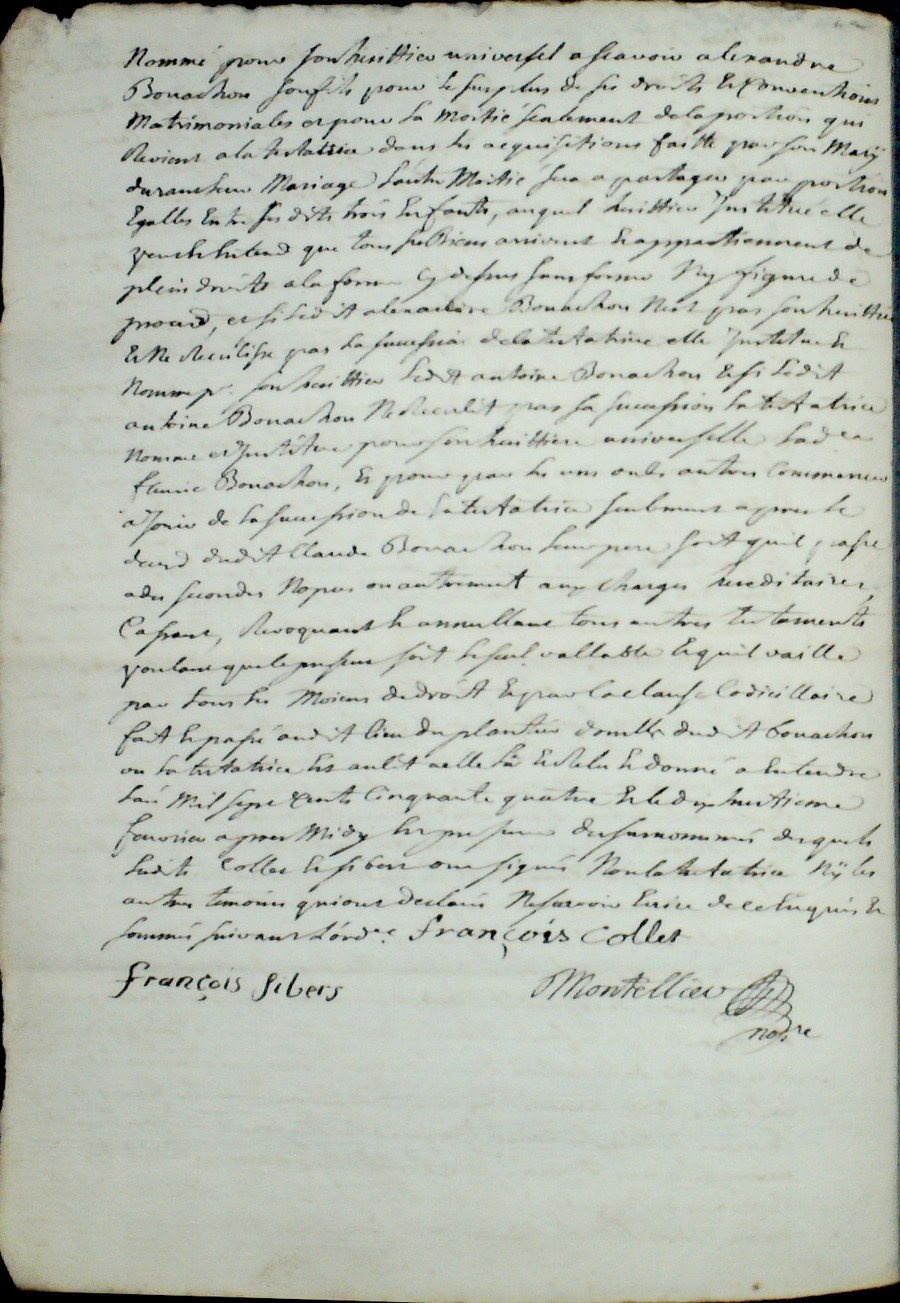 Nommé pour son herittier universel a scavoir alexandre
Bonachon son fils pour le surplus de ses droits et Conventions
Matrimoniales et pour la moitié sealement de la portion qui
Revient a la testatrice dans les acquisitions faitte par son Mary
durant leur Mariage l'autre Moitié sera a partager par portion
Egalles Entre ses dits trois Enfants, auquel herittier Institué elle
veut Entend que tous ses Biens arrivent et appartiennent de
plein droits a la forme Cy dessus sans forme Ny figure de
proced, et si Ledit alexandre Bonachon N'est pas son herittier
Et Ne Recüillisse pas sa sucession de la testatrice elle Institue Et
Nomme pr. son herittier Ledit antoine Bonachon Et si Ledit
antoine Bonachon Ne Receulit pas sa sucession la testatrice
Nomme et Institue pour son herittiere universelle lad.e
Bonachon, Et pour par les uns ou les autres Commencer
a Jouir de la sucession de la testatrice seulement apres le
deced dudit Claude Bonachon leur pere soit quil passe
a des secondes Nopces ou autrement aux Charges hereditaires,
Cassant, Revoquant Et annullant tous autres testaments
voulant que le present soit le seul vallable Et quil vaille
par tous les Moiens de droit Et par la clause Codicillaire
fait Et passé audit lieu du plantier domille dudit bonachon
ou la testatrice Est au lit a elle lû Et Relu Et donné a Entendre
L'an Mil sept Cents Cinquante quatre Et le dix huitieme
fevrier apres Midy En presence des surnommés desquels
Lesdits Collet Et sibers ont signés Non la testatrice Ny les
autres temoins qui ont Declarés Ne scavoir Ecrire de ce Enquis Et
sommés suivant L'ord.e. françois Collet
françois sibers Montellier
no.re